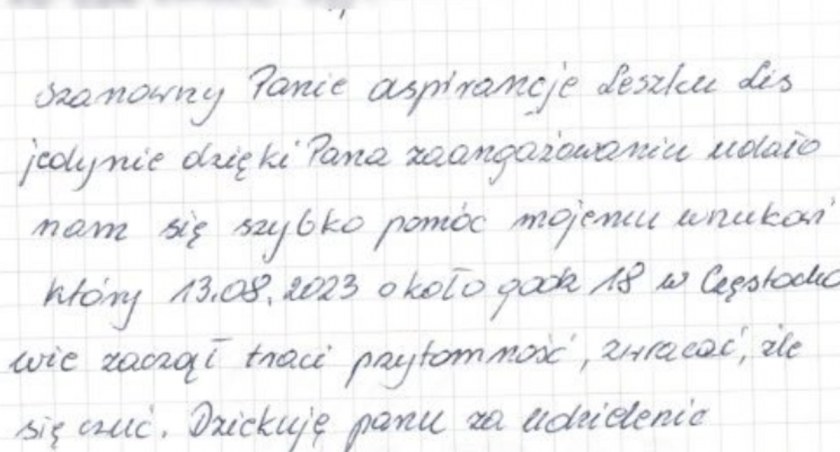 Szanowny Panie aspirancje Leszku Lis
jedynie dzięki Pana zaangażowaniu udało
nam się szybko pomóc mojemu wnukowi
który 13.08.2023 około godz 18 w Częstocho
wie zaczął traci przytomność, zwracać, źle
się czuć. Dziekuję panu za udzielenie